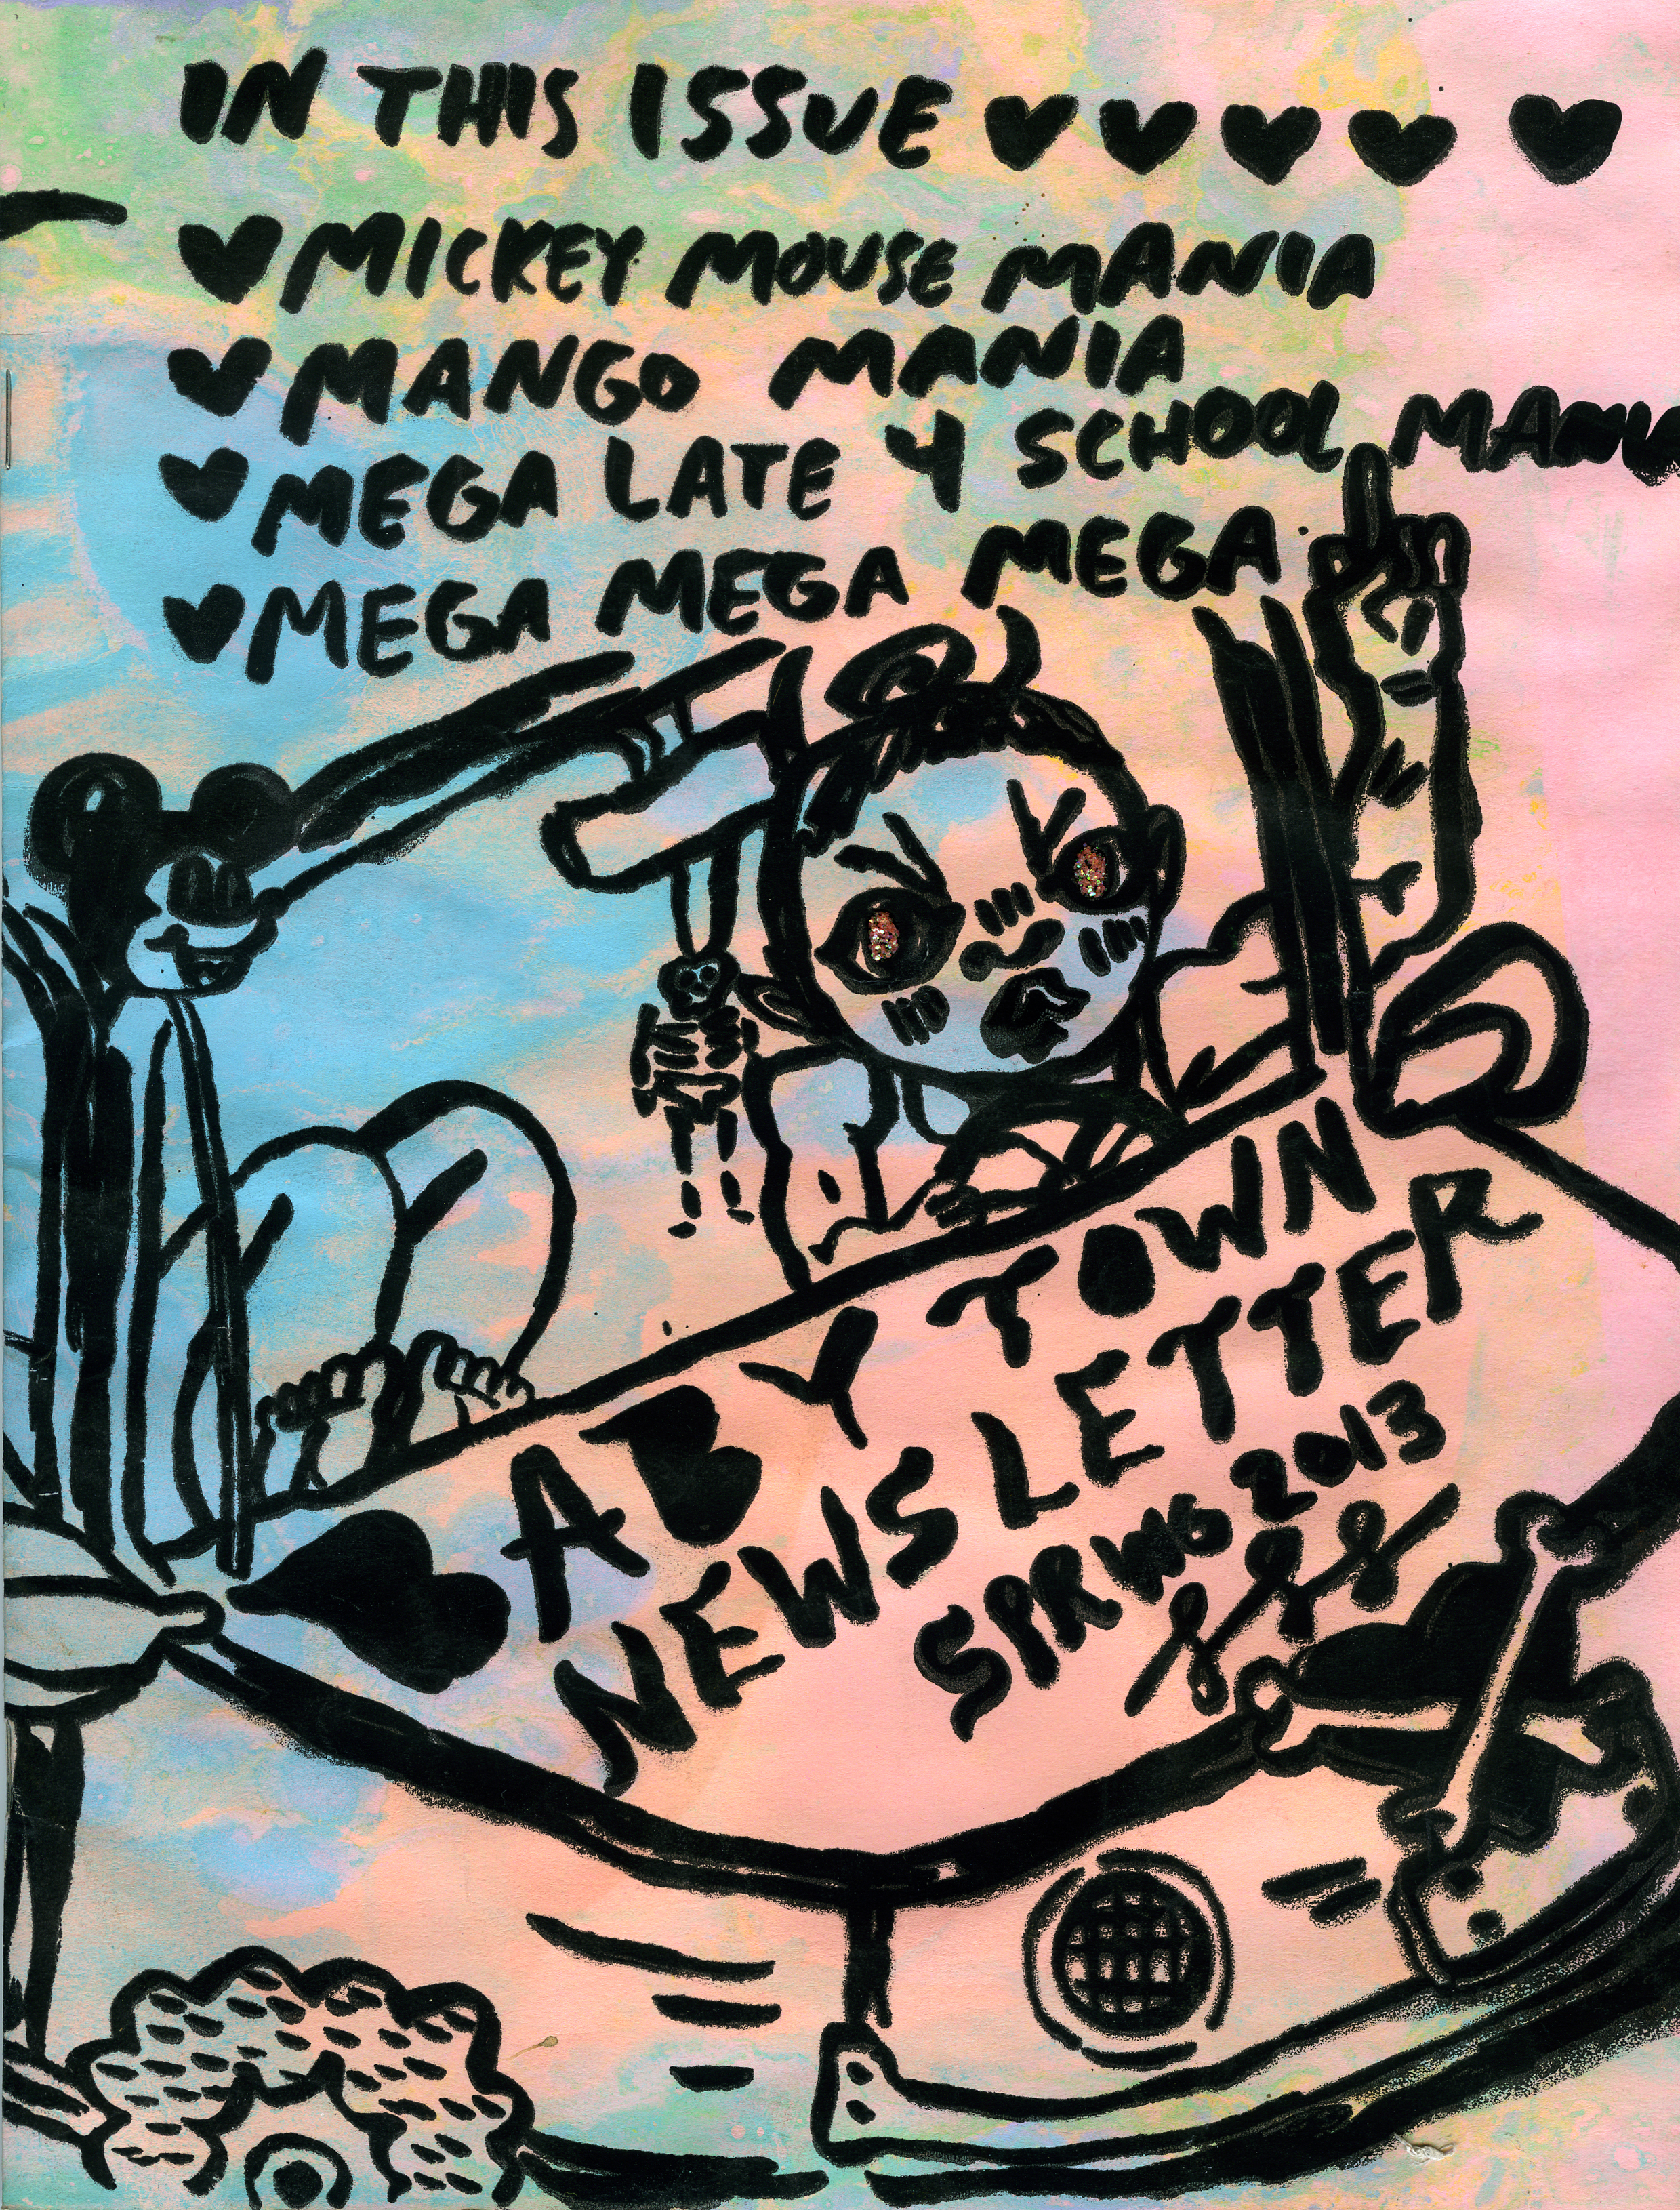 IN THIS ISSUE
MICKEY MOUSE MANIA
MANGO MANIA
MEGA LATE 4 SCHOOL MANIA
MEGA MEGA MEGA
BABY TOWN
NEWSLETTER
SPRING 2013